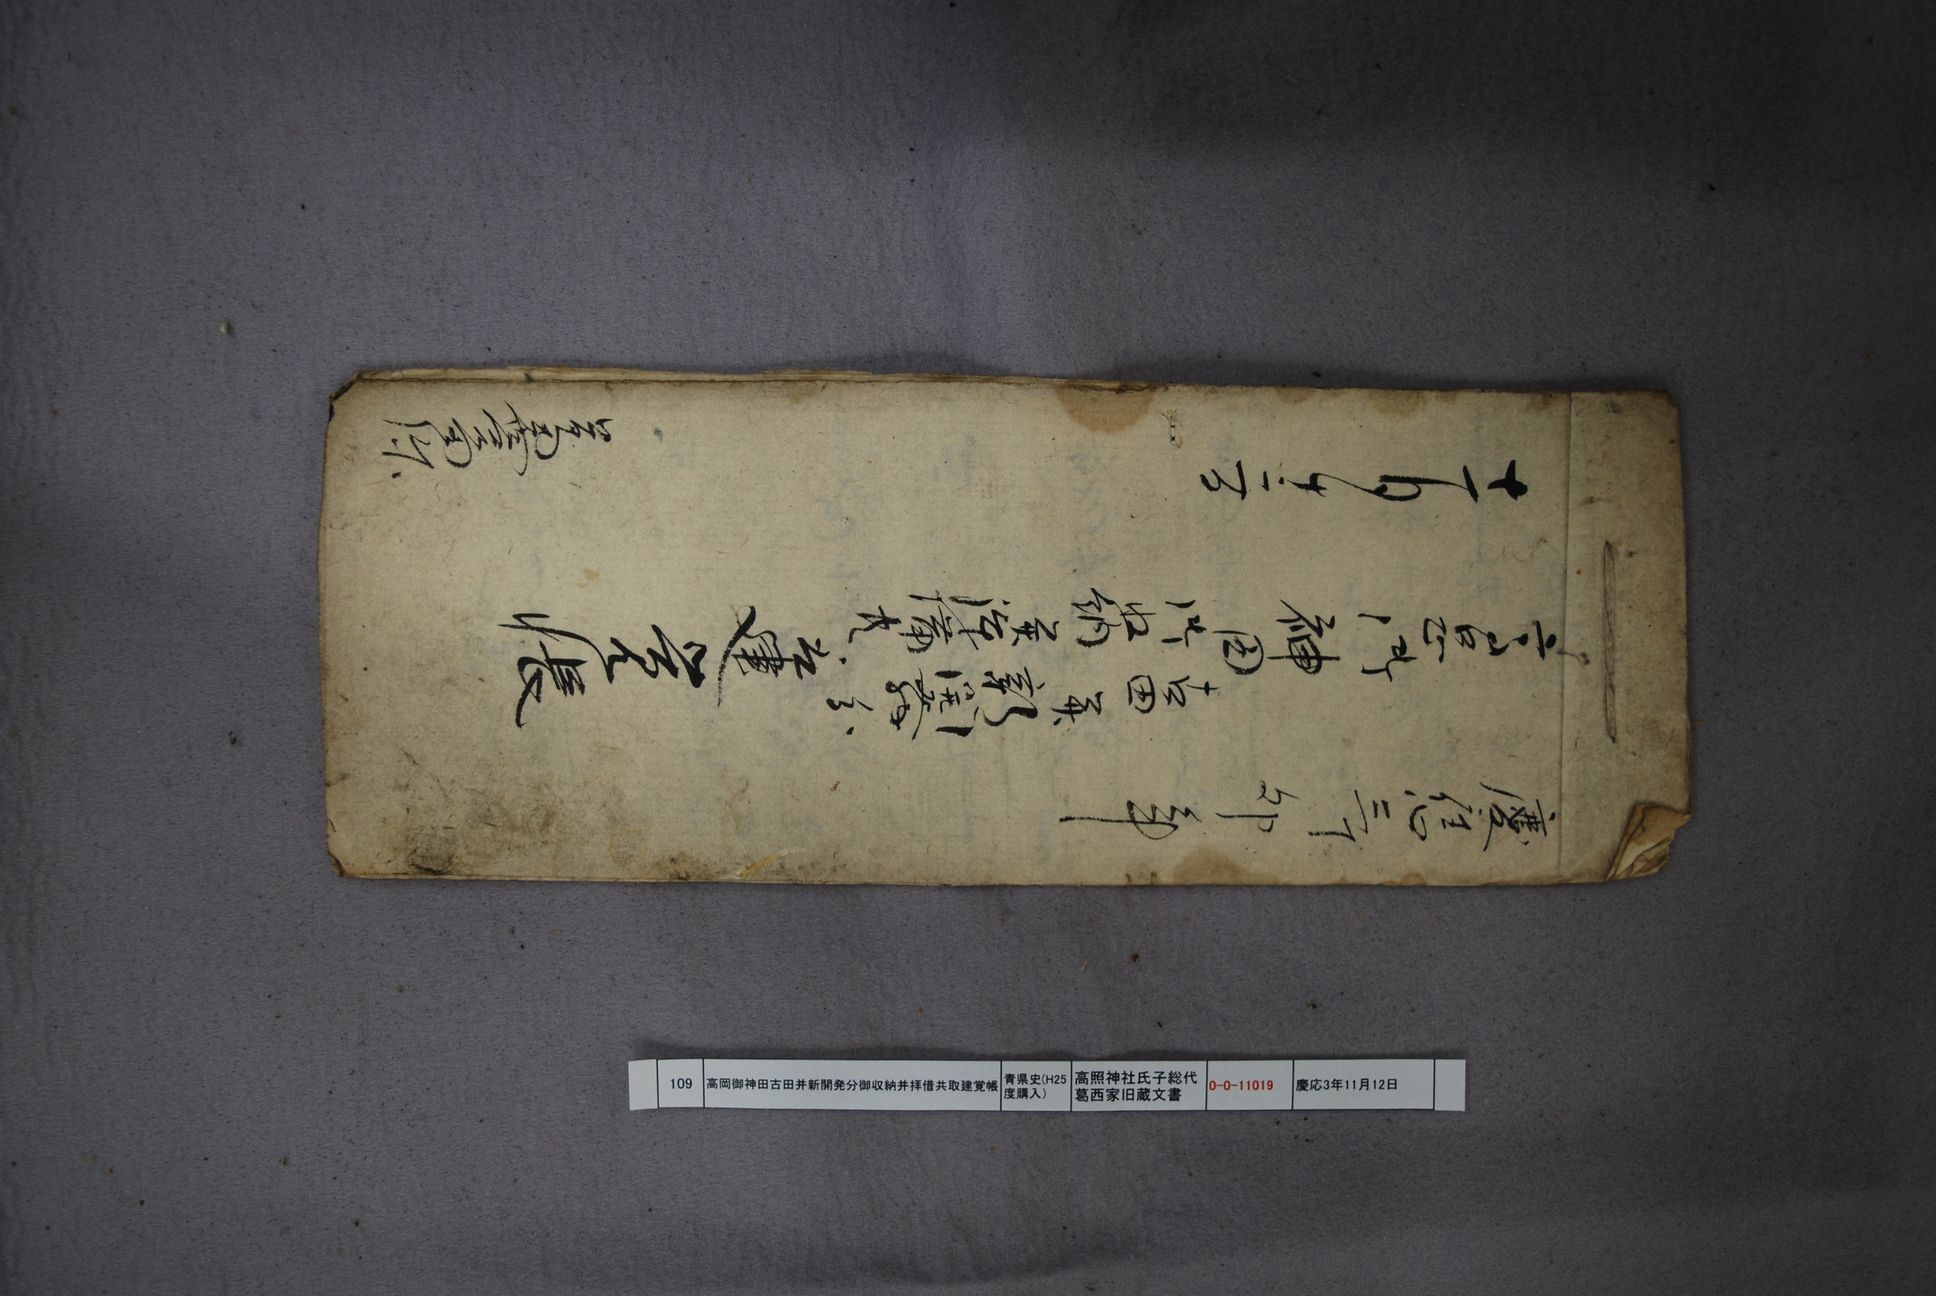 慶應三丁卯年
高岡御神田
古田并新開發分
御収納并拝借共
取建覚帳
十一月十二日
109
高岡御神田古田并新開発分御収納并拝借共取建覚帳
青県史(H25
度購入)
高照神社氏子総代
葛西家旧蔵文書
0-0-11019
慶応3年11月12日